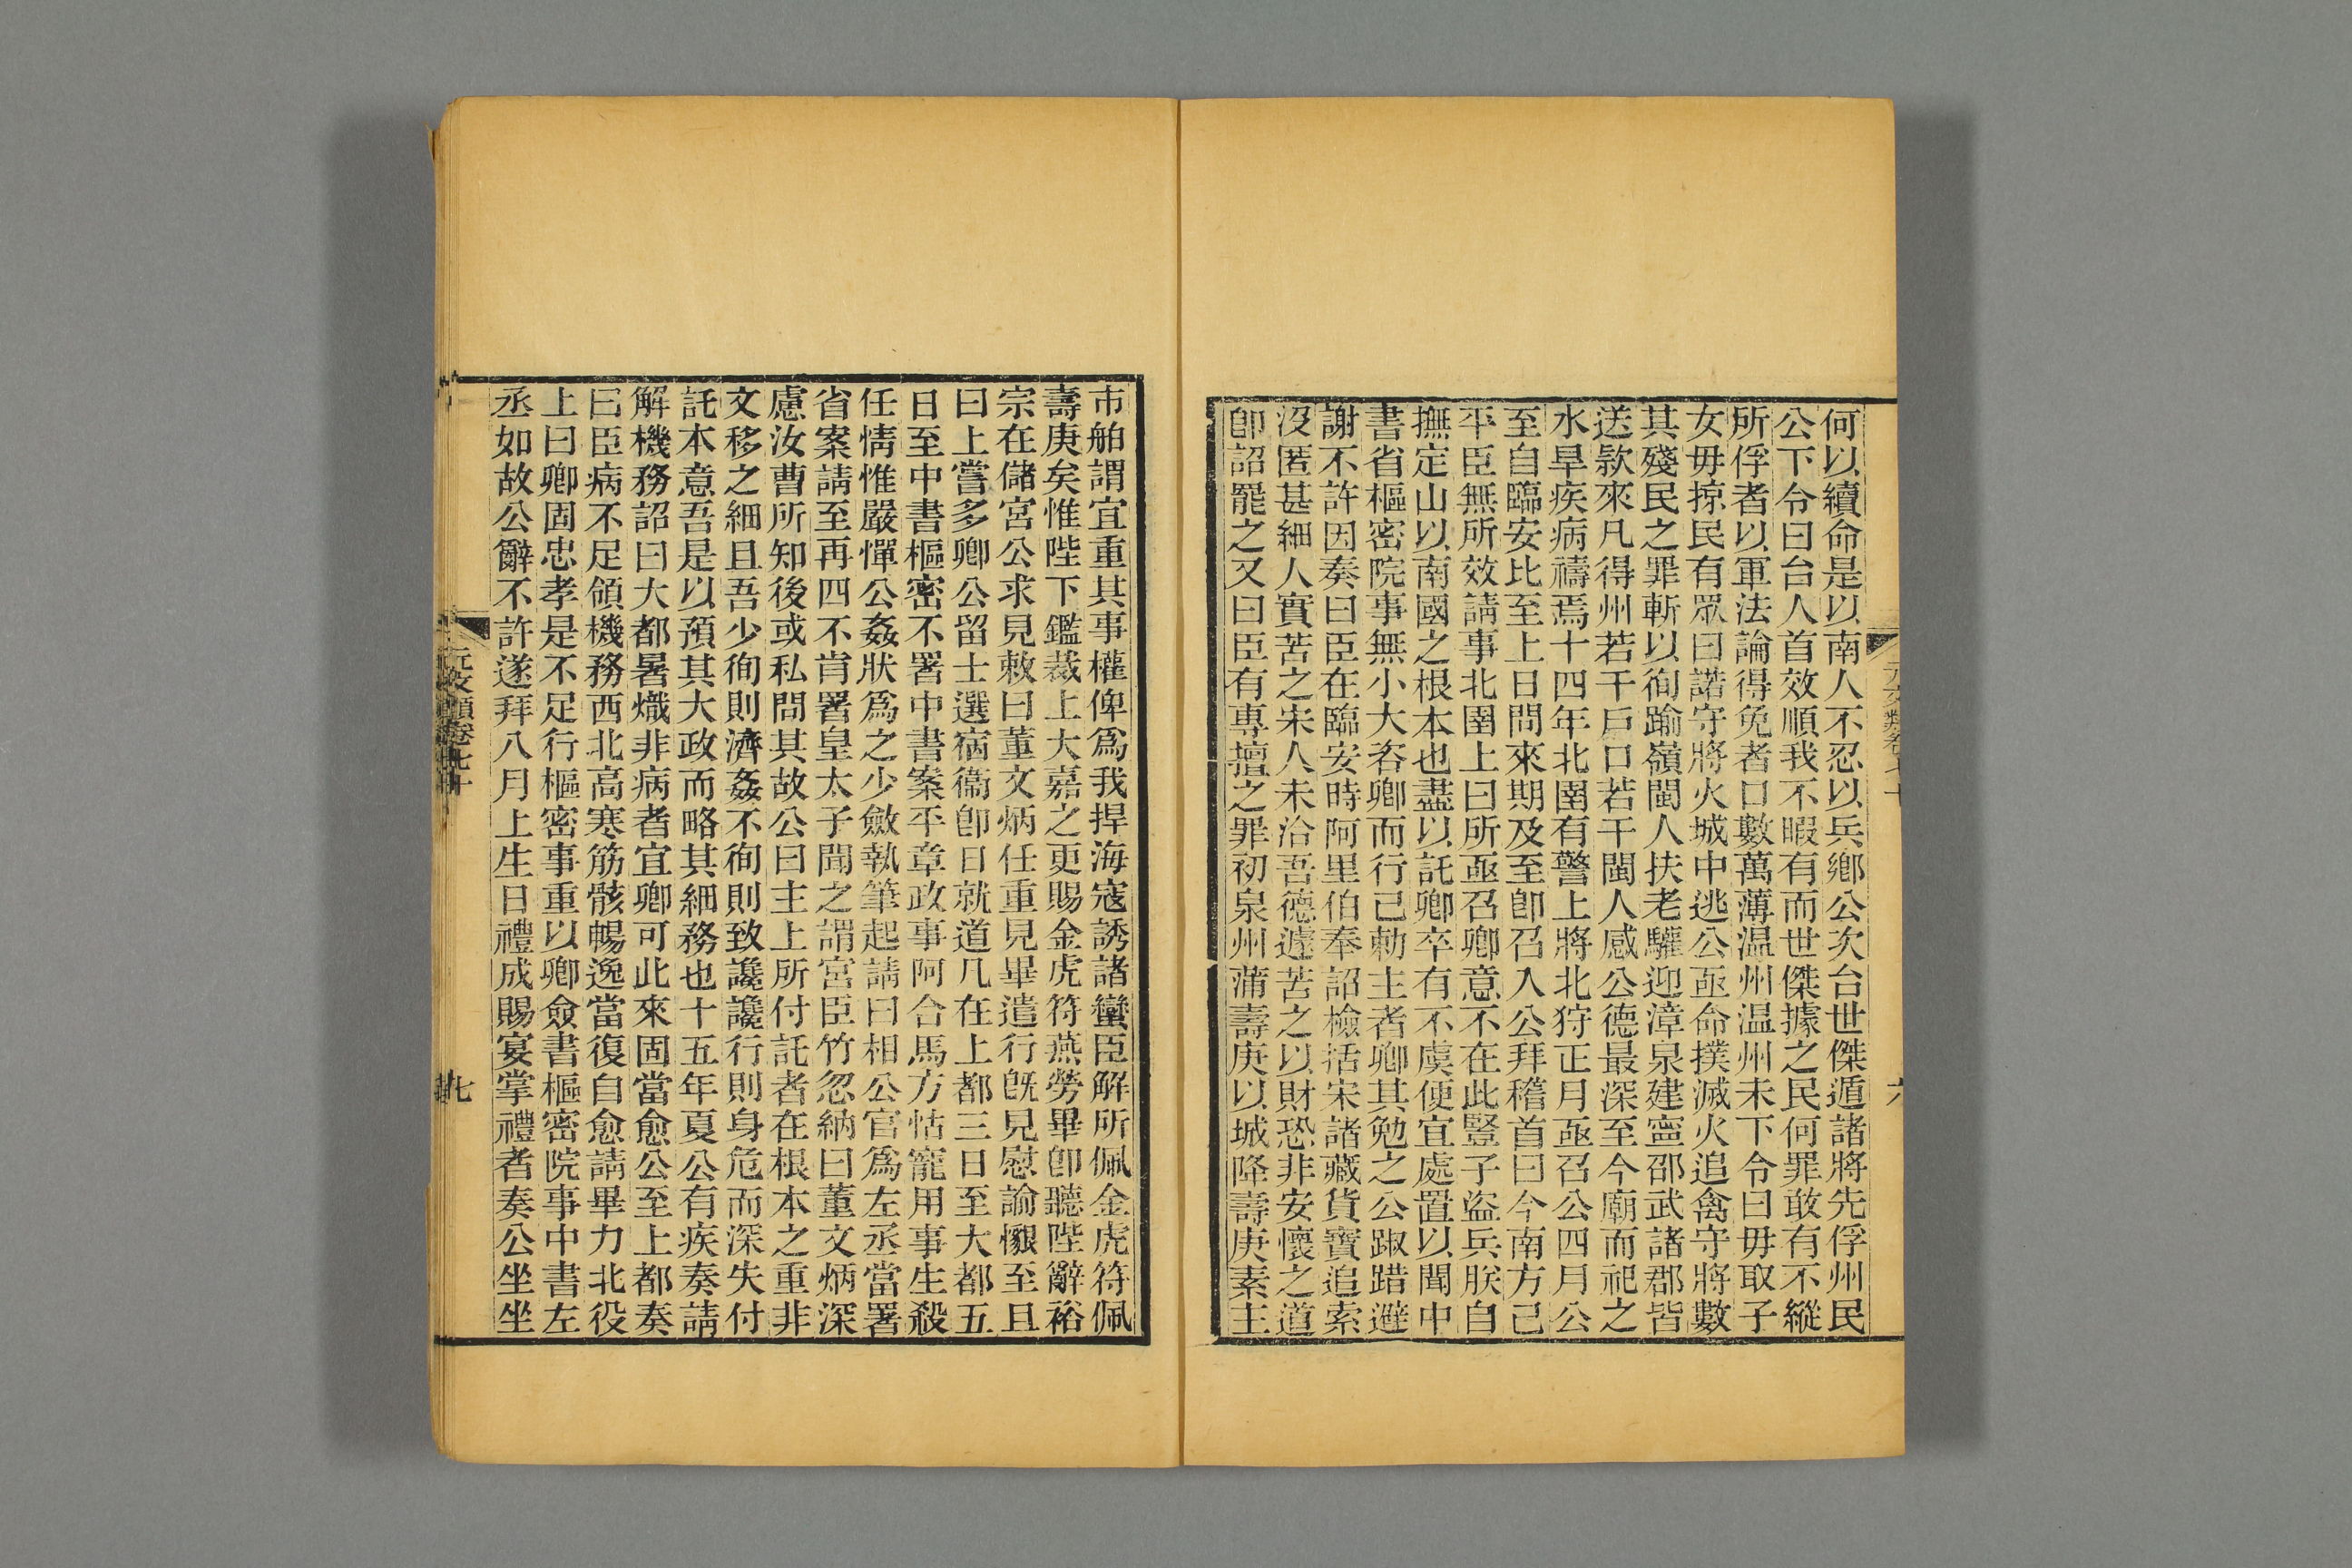 何以續命是以南人不忍以兵鄉公次台世傑遁諸將先俘州民
公下令曰台人首效順我不暇有而世傑據之民何罪敢有不縱
所俘者以軍法論得免者口數萬薄温州温州未下令曰毋取子
女毋掠民有眾曰諾守將火城中逃公亟命撲滅火追禽守將數
其殘民之罪斬以徇踰嶺閩人扶老驩迎漳泉建寧邵武諸郡皆
送欵來凡得州若干戶口若干閩人感公德最深至今廟而祀之
水旱疾病禱焉十四年北圉有警上將北狩正月亟召公四月公
至自臨安比至上日問來期及至卽召入公拜稽首曰今南方已
平臣無所效請事北圉上曰所亟召卿意不在此豎子盜兵朕自
撫定山以南國之根本也盡以託卿卒有不虞便宜處置以聞中
書省樞密院事無小大咨卿而行已勅主者卿其勉之公踧踖避
謝不許因奏曰臣在臨安時阿里伯奉詔檢括宋諸藏貨寶追索
沒匿甚細人實苦之宋人未洽吾德遽苦之以財恐非安懷之道
卽詔罷之又曰臣有專壇之罪初泉州蒲壽庚以城降壽庚素主
元文類卷七十
六
市舶謂宜重其事權俾爲我捍海寇誘諸蠻臣解所佩金虎符佩
壽庚矣惟陛下鑑裁上大嘉之更賜金虎符燕勞畢卽聽陛辭裕
宗在儲宮公求見敕曰董文炳任重見畢遣行旣見慰諭懇至且
曰上嘗多卿公留士選宿衞卽日就道凡在上都三日至大都五
日至中書樞密不署中書案平章政事阿合馬方怙寵用事生殺
任情惟嚴憚公姦狀爲之少斂執筆起請曰相公官爲左丞當署
省案請至再四不肯署皇太子聞之謂宮臣竹忽納曰董文炳深
慮汝曹所知後或私問其故公曰主上所付託者在根本之重非
文移之細且吾少徇則濟姦不徇則致讒讒行則身危而深失付
託本意吾是以預其大政而略其細務也十五年夏公有疾奏請
解機務詔曰大都暑熾非病者宜卿可此來固當愈公至上都奏
曰臣病不足領機務西北高寒筋骸暢逸當復自愈請畢力北役
上曰卿固忠孝是不足行樞密事重以卿僉書樞密院事中書左
丞如故公辭不許遂拜八月上生日禮成賜宴掌禮者奏公坐坐
元文類卷七十
七